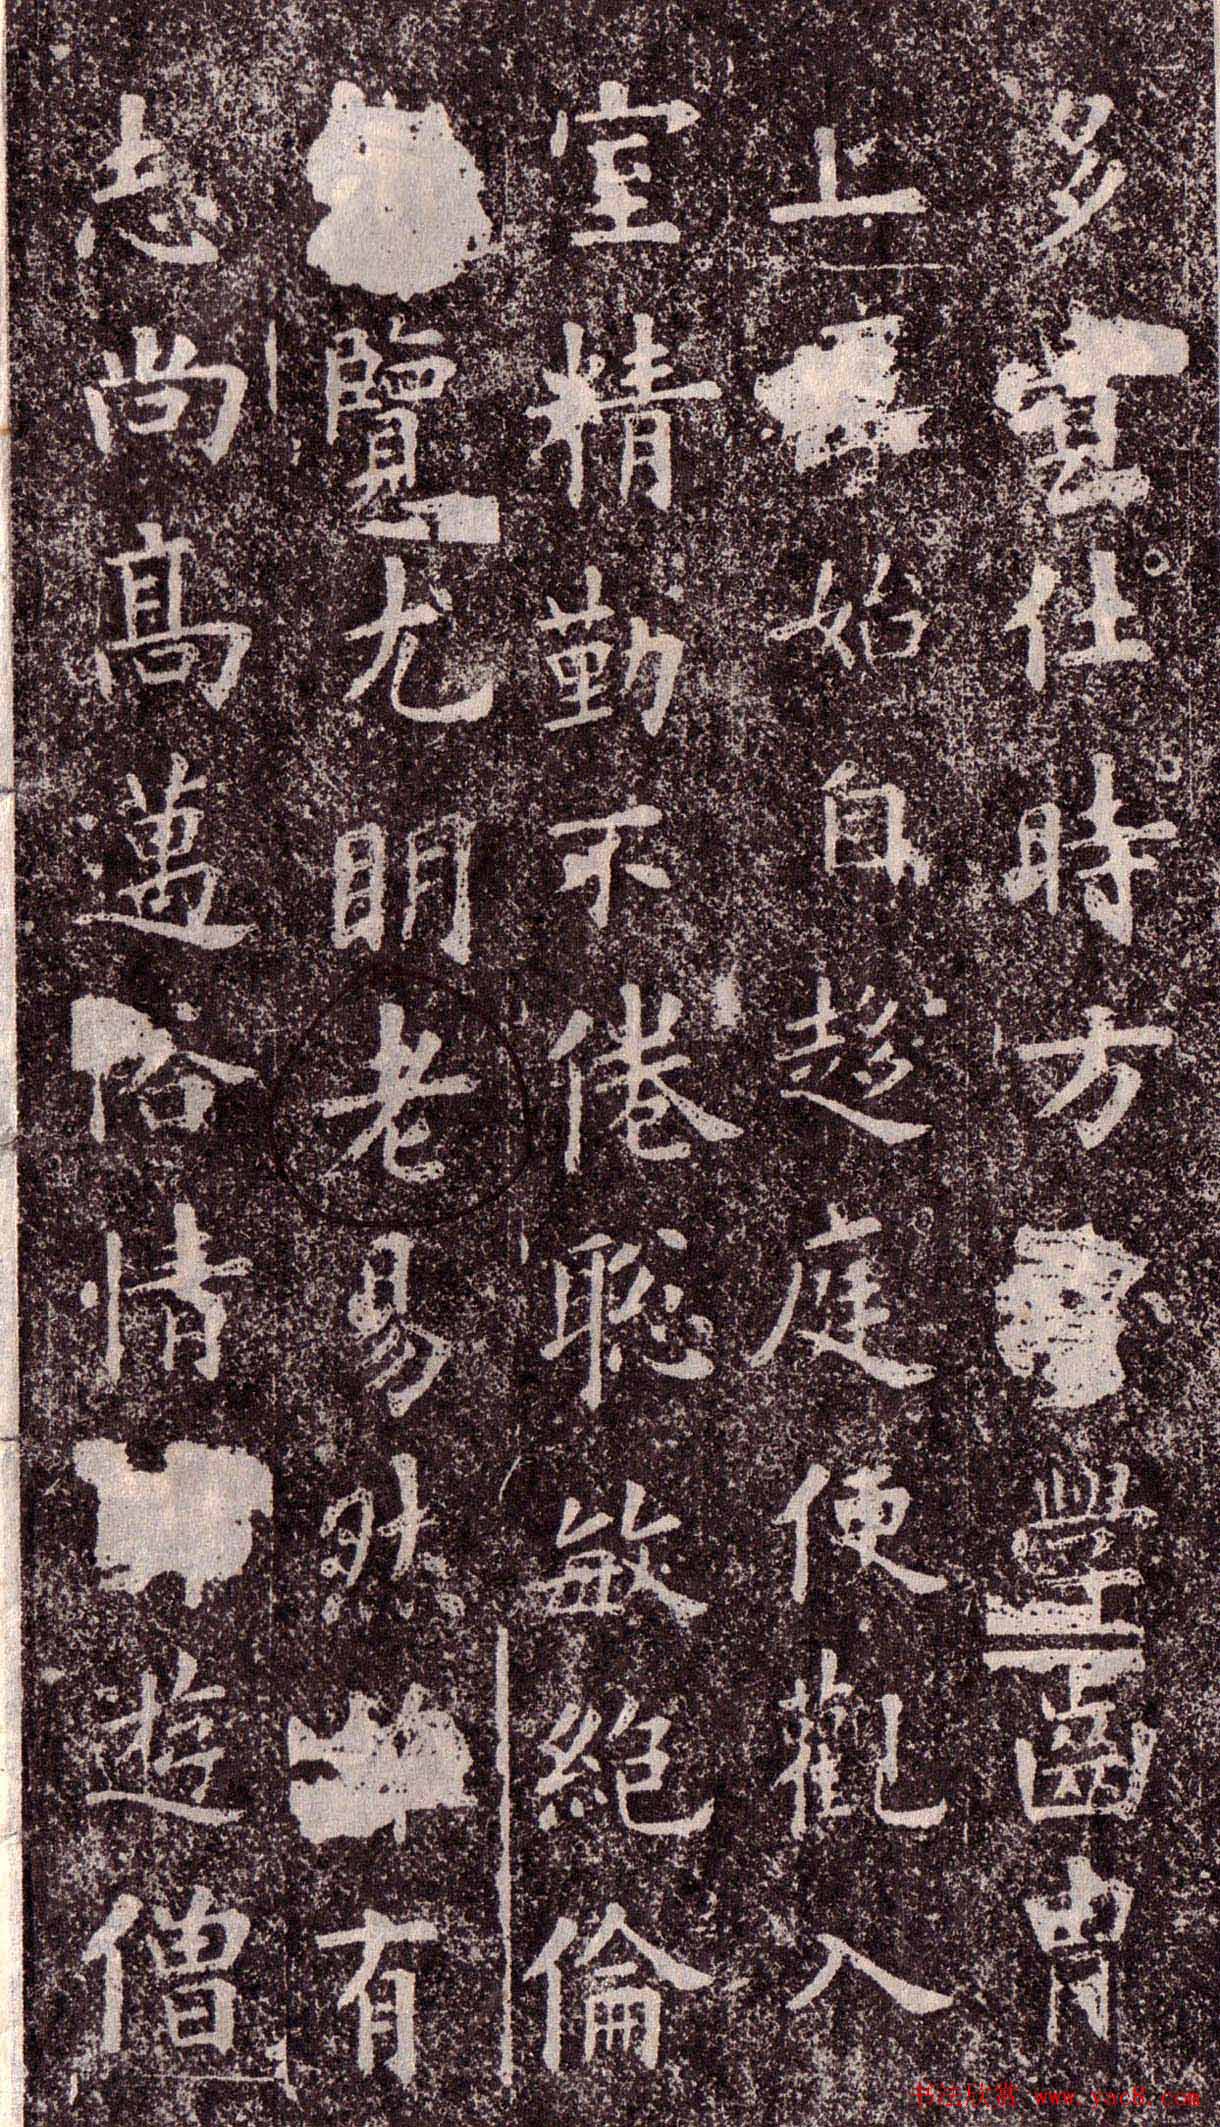 多宦仕時方學齒胄
上始自趍庭便觀入
室精勤不倦聡敏絕倫
覽尤明老易然有
志尚高邁俗情遊僧
书法欣赏 www.yac8.com